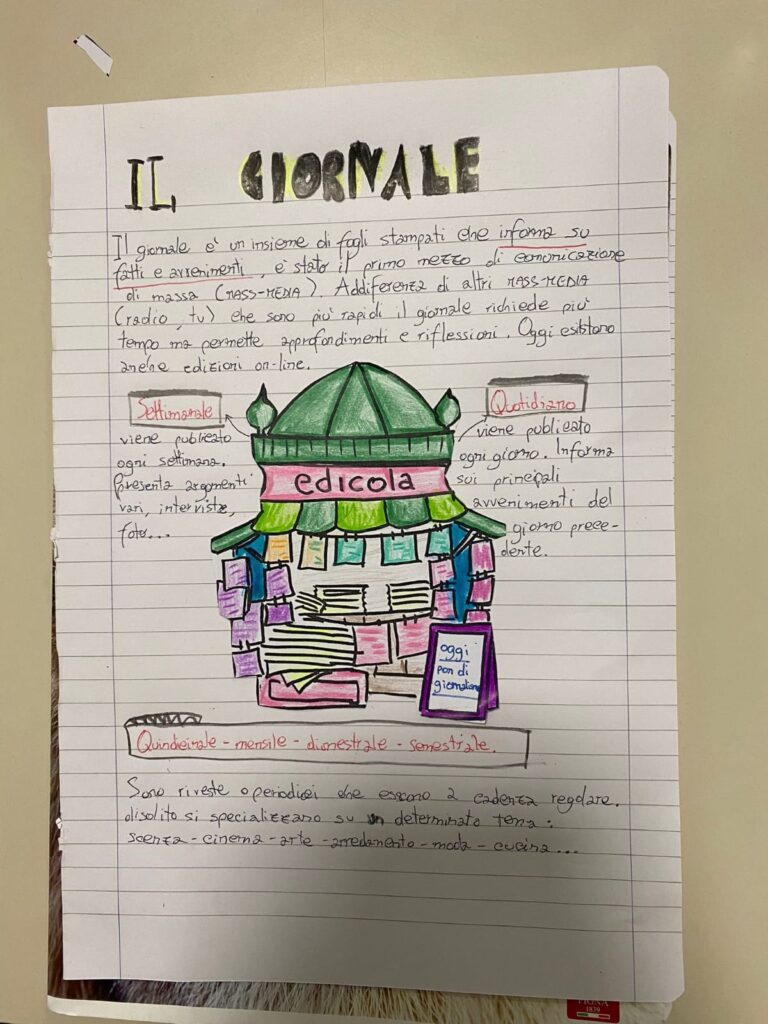 IL GIORNALE
Il giornale è un insieme di fogli stampati che informa su
fatti e avvenimenti, è stato il primo mezzo di comunicazione
di massa (MASS-MEDIA). Addiferenza di altri MASS-MEDIA
(radio, tv) che sono più rapidi il giornale richiede più
tempo ma permette approfondimenti e riflessioni. Oggi esistono
anche edizioni on-line.
Settimanale
viene publicato
ogni settimana.
Presenta argomenti
vari, interviste,
foto...
Quotidiano
viene publicato
ogni giorno. Informa
sui principali
avvenimenti del
giorno prece-
dente.
edicola
oggi
pan di
Quindicinale - mensile - bimestrale - semestrale.
Sono riveste o periodici che escono a cadenza regolare.
disolito si specializzano su un determinato tema:
scenza - cinema - arte - arredamento - moda - cucina...
1839